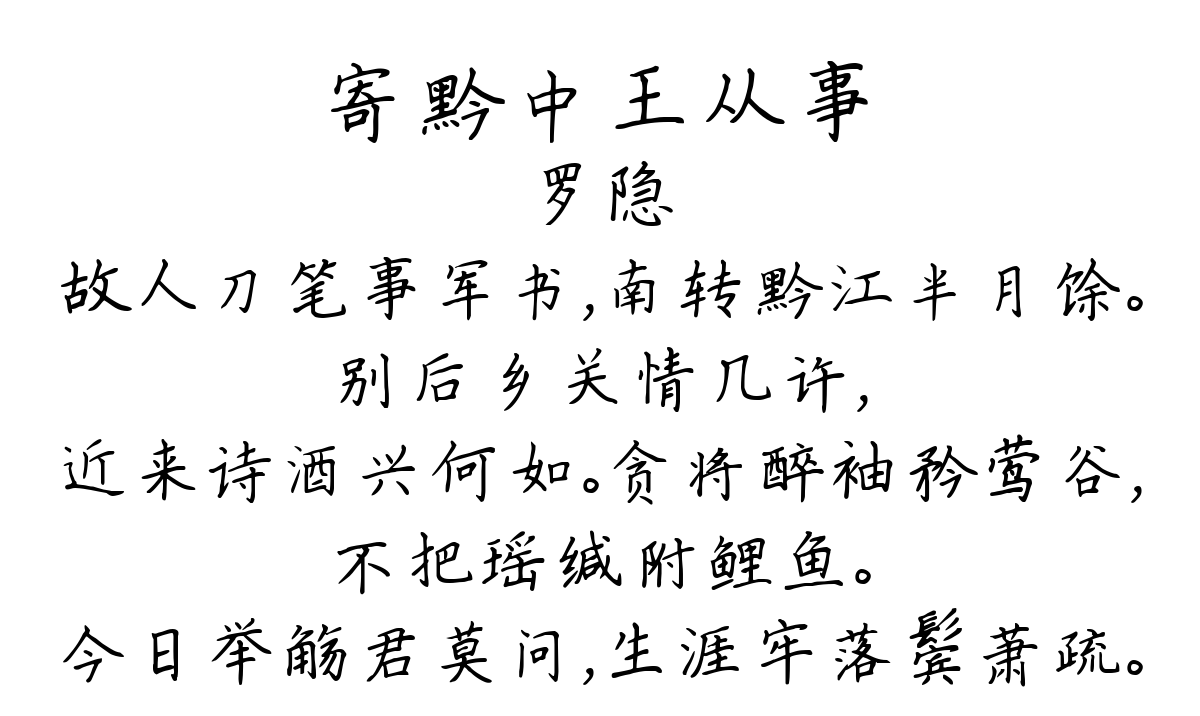 寄黔中王从事
罗隐
故人刀笔事军书,南转黔江半月馀。
别后乡关情几许,
近来诗酒兴何如。贪将醉袖矜莺谷,
不把瑶缄附鲤鱼。
今日举觞君莫问,生涯牢落鬓萧疏。